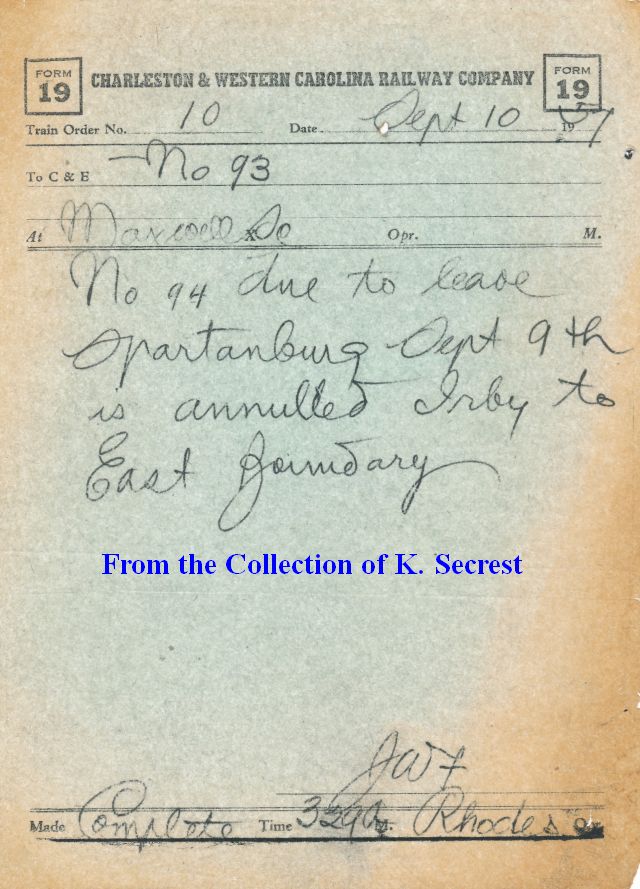 FORM 19 CHARLESTON & WESTERN CAROLINA RAILWAY COMPANY FORM 19
Train Order No. 10 Date. Sept 10 1957
To C & E No 93
At Maxwell So X Opr. M.
No 94 due to leave
Spartanburg Sept 9th
is annulled Irby to
East Boundary
From the Collection of K. Secrest
JWF
Made Complete Time 329 A M. Rhodes Opr